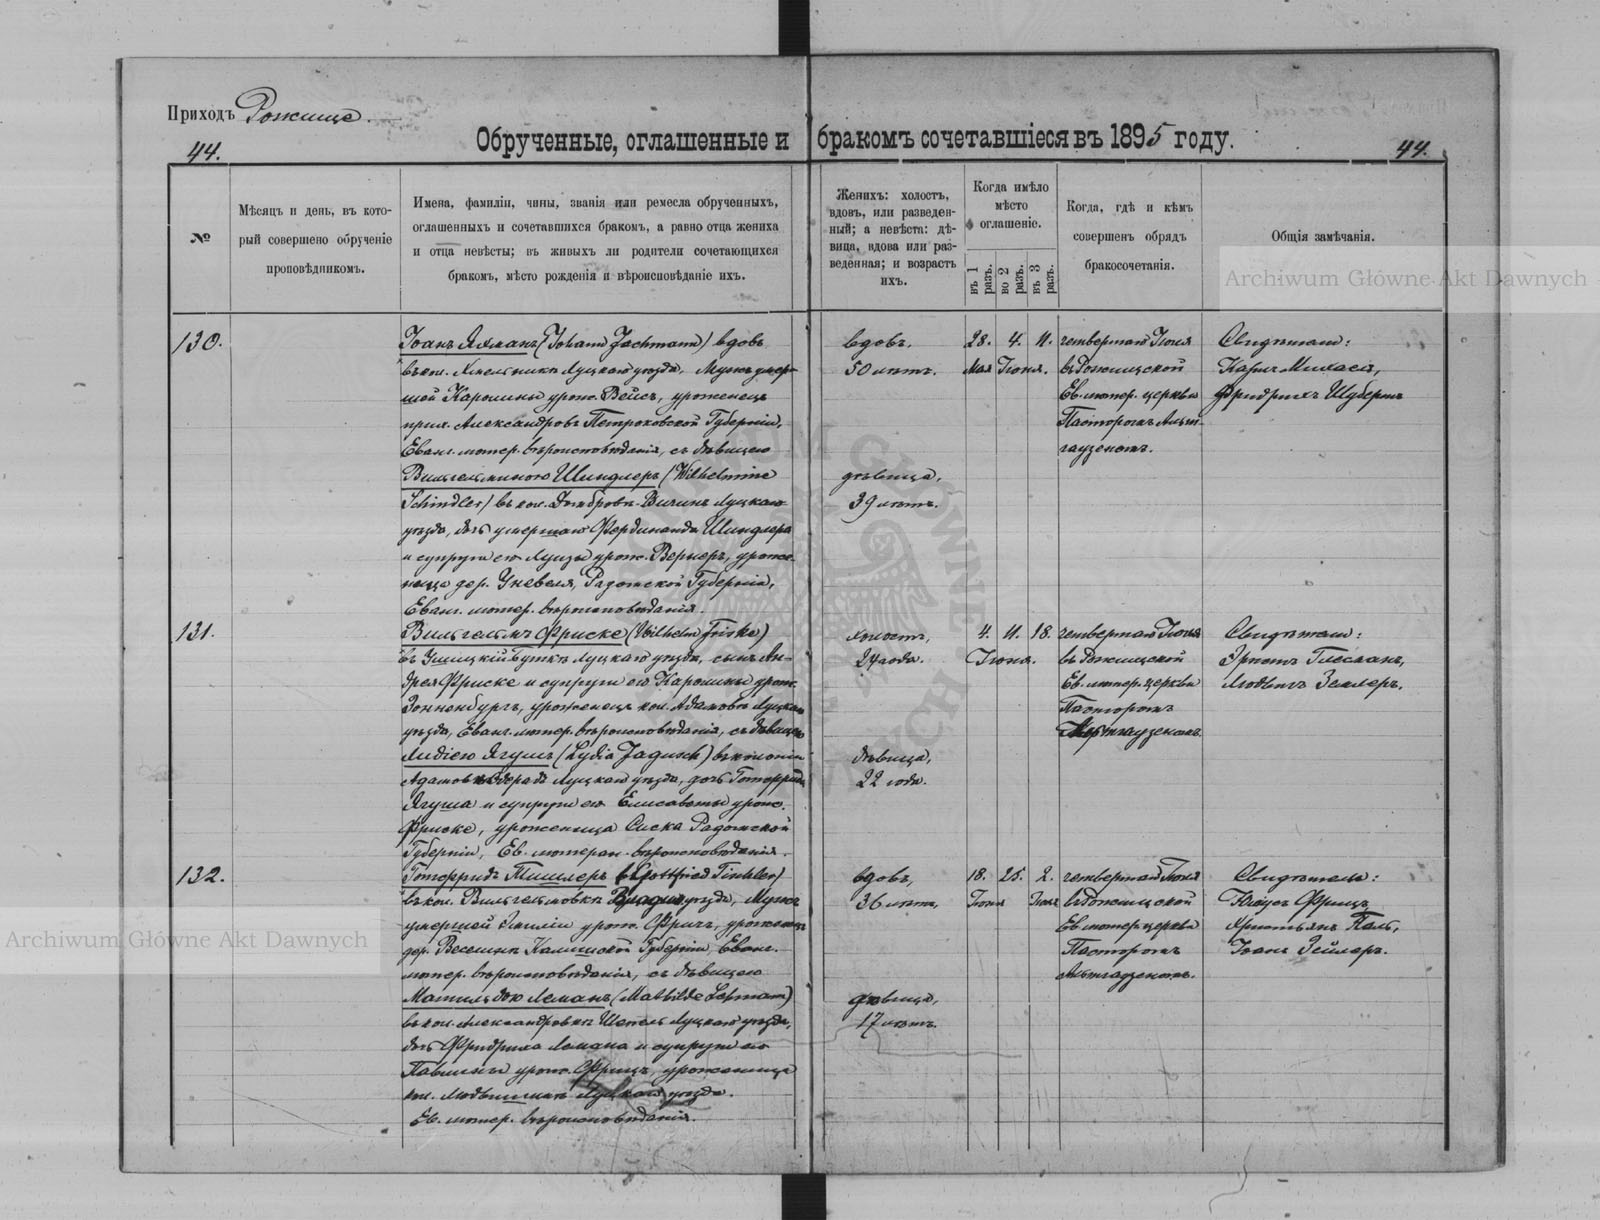 Приходъ Рожище.
44.
Обрученные, оглашенные и бракомъ сочетавшіеся въ 1895 году.
44.
№
Мѣсяцъ и день, въ кото-
рый совершено обрученіе
проповѣдникомъ.
Имена, фамиліи, чины, званія или ремесла обрученныхъ,
оглашенныхъ и сочетавшихся бракомъ, а равно отца жениха
и отца невѣсты; въ живыхъ ли родители сочетающихся
бракомъ, мѣсто рожденія и вѣроисповѣданіе ихъ.
Женихъ: холостъ,
вдовъ, или разведен-
ный; а невѣста: дѣ-
вица, вдова или раз-
веденная; и возрастъ
ихъ.
Когда имѣло
мѣсто
оглашеніе.
въ 1 разъ.
во 2 разъ.
въ 3 разъ.
Когда, гдѣ и кѣмъ
совершенъ обрядъ
бракосочетанія.
Общія замѣчанія.
130.
Іоанъ Яхманъ (Johann Jachmann) вдовъ
въ кол. Хмельникъ Луцкаго уѣзда, Мужъ умер-
шей Каролины урож. Вейсъ, уроженецъ
прих. Александровъ Петроковской Губерніи,
Еванг. лютер. вѣроисповѣданія, съ дѣвицею
Вильгельминою Шиндлеръ (Wilhelmine
Schindler) въ кол. Домбровъ Луцкаго
уѣзда, дочь умершаго Фердинанда Шиндлера
и супруги его Луизы урож. Вернеръ, уроже-
ница дер. Радомской Губерніи,
Еванг. лютер. вѣроисповѣданія.
вдовъ.
50 лѣтъ.
дѣвица,
39 лѣтъ.
28. 4. 11.
Мая Іюня.
четвертаго Іюня
въ Рожищской
Ев. лютер. церкви
Пасторомъ Альт-
гаузеномъ.
Свидѣтели:
Карлъ Михаел,
Фридрихъ Шубертъ
131.
Вильгельмъ Фриске (Wilhelm Friske)
въ Луцкаго уѣзда, сынъ Ан-
дрея Фриске и супруги его Каролины урож.
Зонненбургъ, уроженецъ кол. Адамовъ Луцкаго
уѣзда, Еванг. лютер. вѣроисповѣданія, съ дѣвицею
Лидіею Ягушъ (Lydia Jagusch) въ колоніи
Адамовъ Луцкаго уѣзда, дочь Готфрида
Ягуша и супруги его Елисаветы урож.
Фриске, уроженица Радомской
Губерніи, Ев. лютеран. вѣроисповѣданія.
холостъ,
24 года.
дѣвица,
22 года.
4. 11. 18.
Іюня.
четвертаго Іюня
въ Рожищской
Ев. лютер. церкви
Пасторомъ
Альтгаузеномъ
Свидѣтели:
Эрнстъ
Людвигъ Землеръ.
132.
Готфридъ Тишлеръ (Gottfried Tischler)
въ кол. Вильгельмовка уѣзда, Мужъ
умершей Эмиліи урож. Фричъ, уроженецъ
дер. Калишской Губерніи, Еванг.
лютер. вѣроисповѣданія, съ дѣвицею
Матильдою Леманъ (Mathilde Lehmann)
въ кол. Александровка Шепель Луцкаго уѣзда,
дочь Фридриха Лемана и супруги его
Павлины урож. Фрицъ, уроженица
кол. Луцкаго уѣзда.
Ев. лютер. вѣроисповѣданія.
вдовъ,
36 лѣтъ,
дѣвица,
17 лѣтъ.
18. 25. 2.
Іюня Іюля
Іюля
въ Рожищской
Ев. лютер. церкви
Пасторомъ
Альтгаузеномъ.
Свидѣтели:
Фрицъ
Христьянъ Паль,
Іоанъ Зейлеръ.
Archiwum Główne Akt Dawnych
Archiwum Główne Akt Dawnych